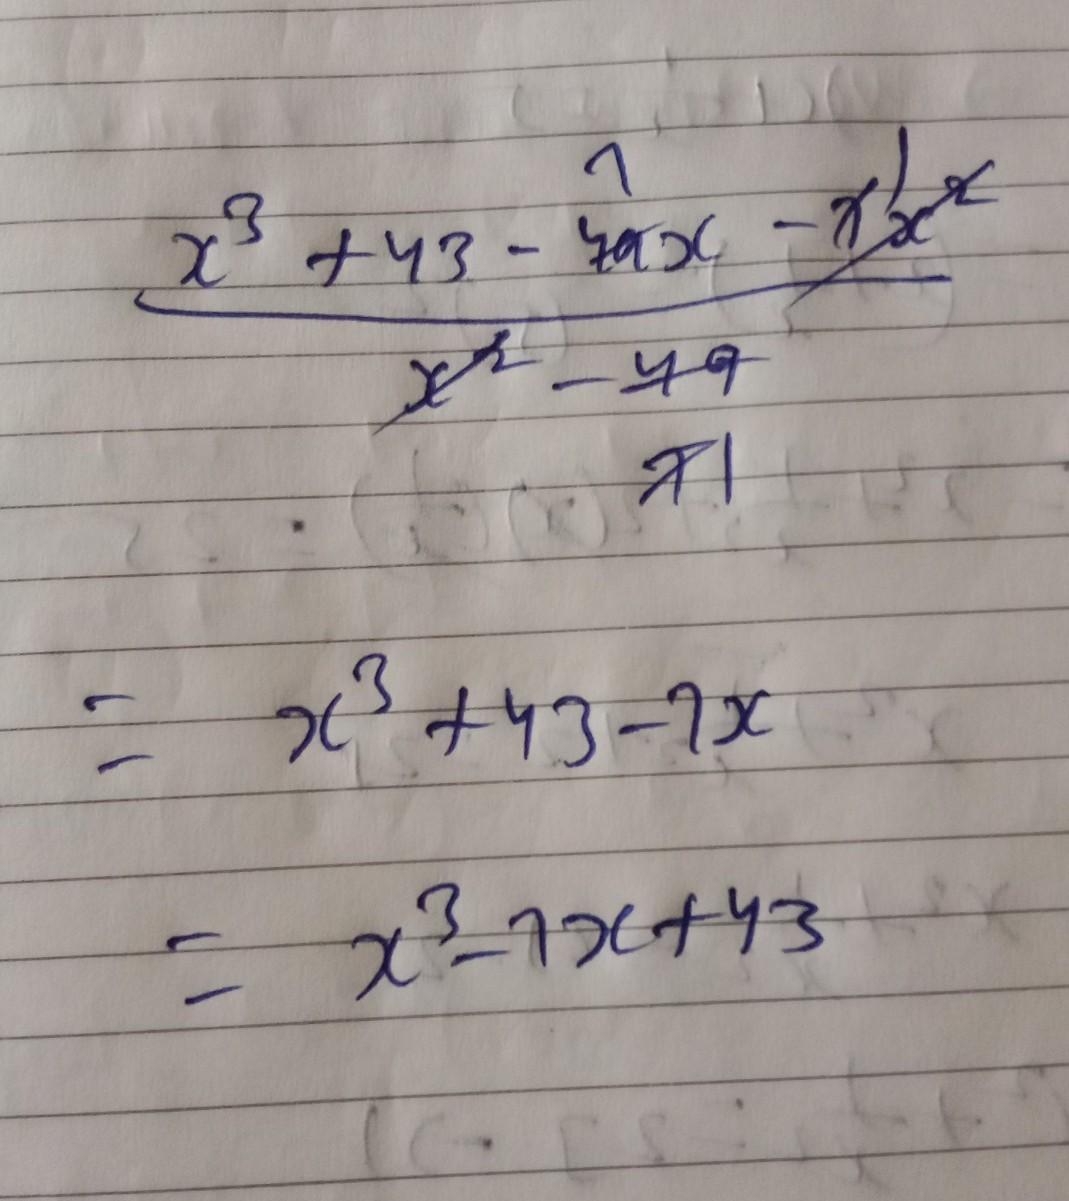 7 1
x³ + 43 - 49x - 7x²
x² - 49
7 1
= x³ + 43 - 7x
= x³ - 7x + 43